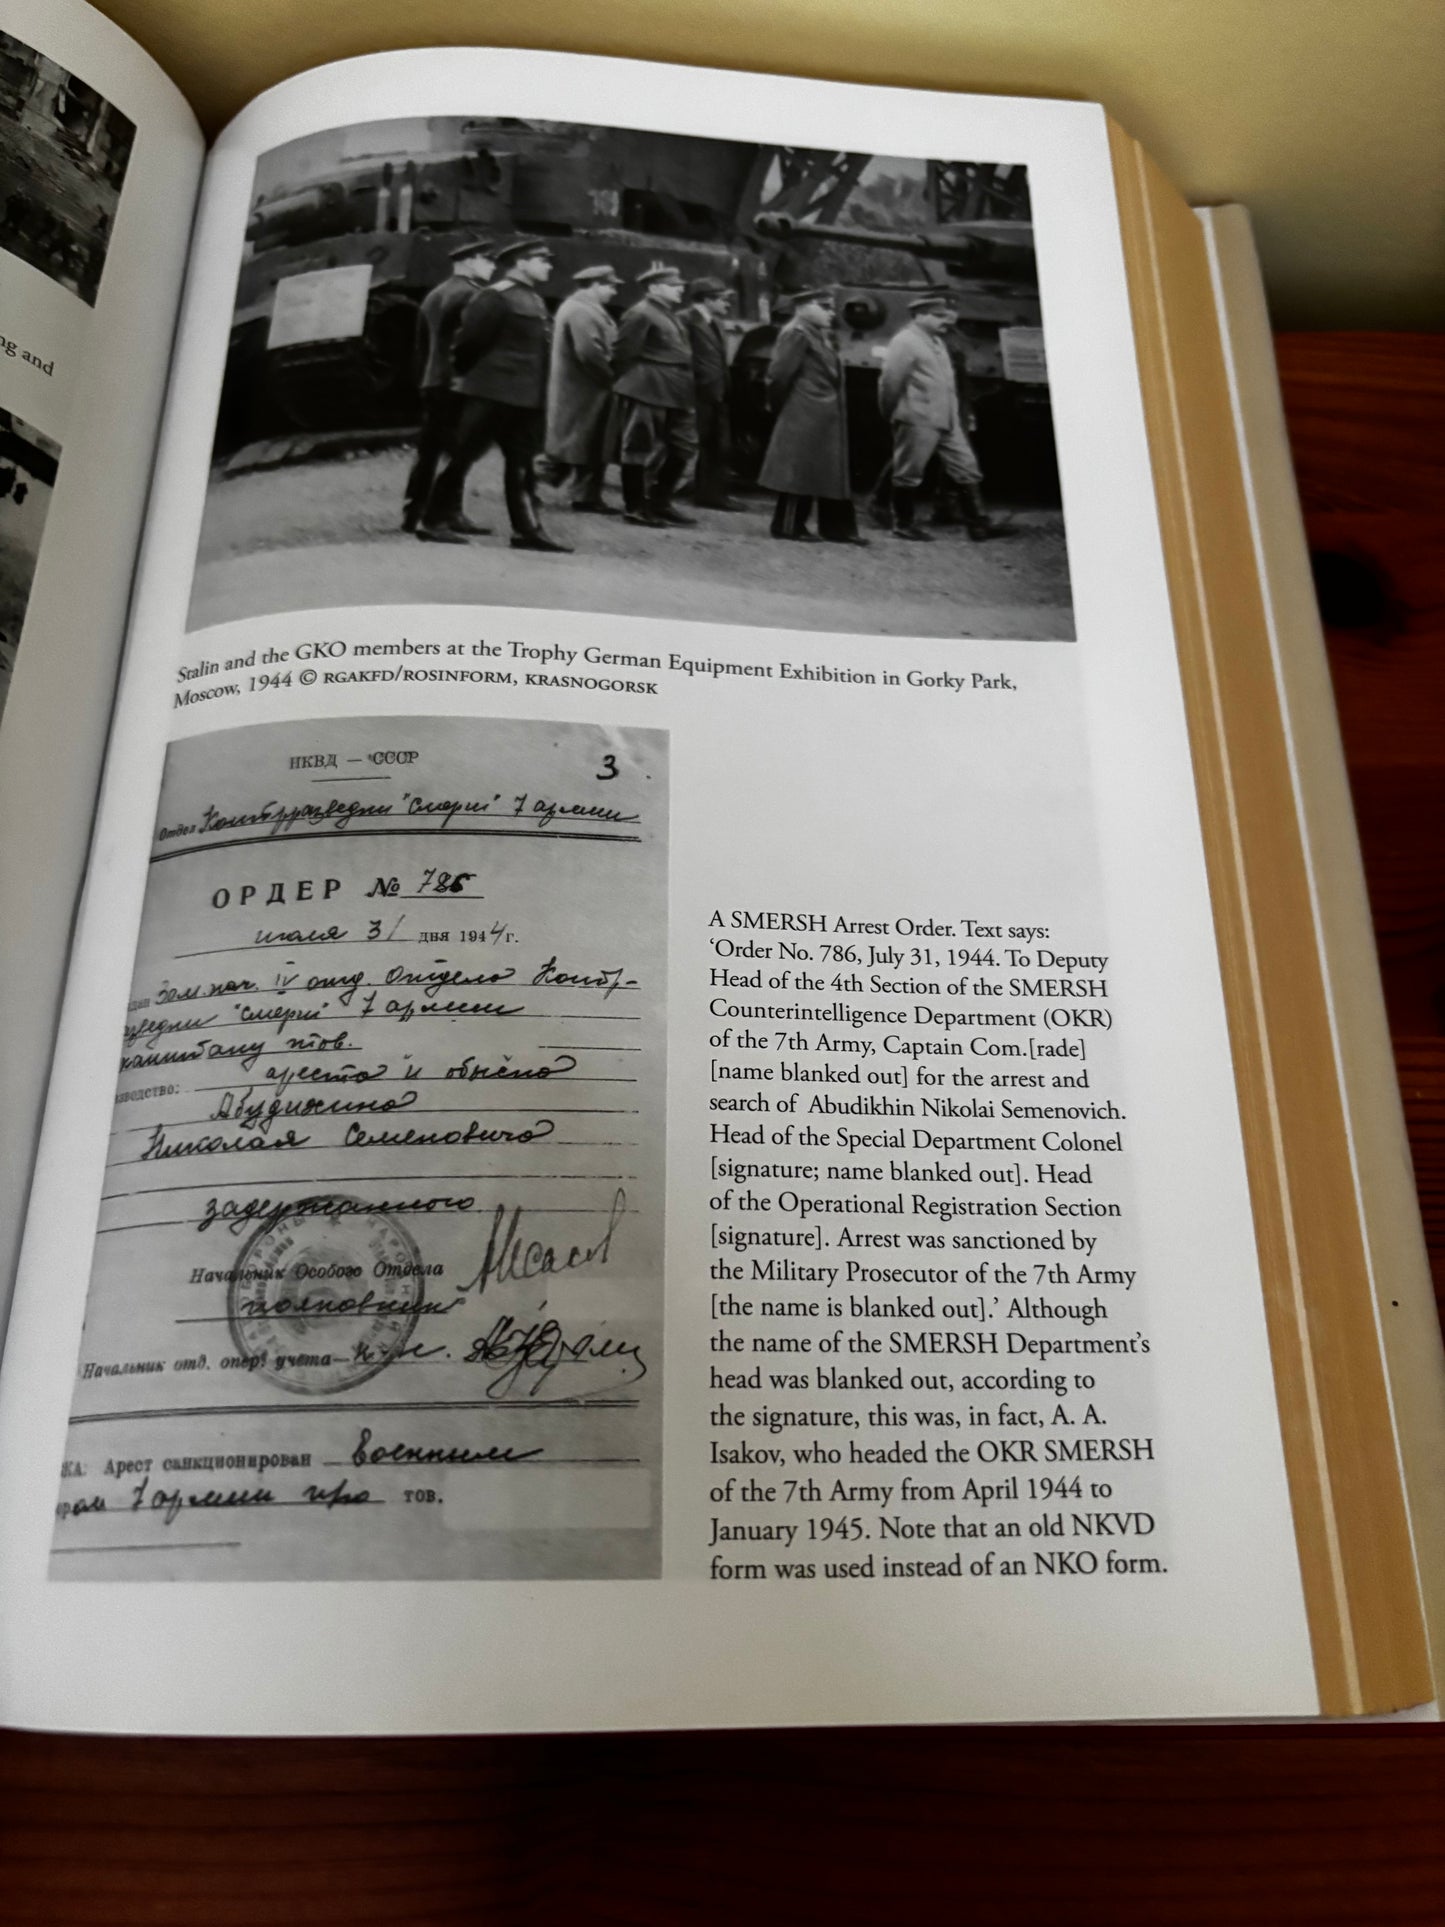 ng and
Stalin and the GKO members at the Trophy German Equipment Exhibition in Gorky Park,
Moscow, 1944 © RGAKFD/ROSINFORM, KRASNOGORSK
НКВД — СССР
3
Отдел Контрразведки "Смерш" 7 армии
ОРДЕР № 786
июля 31 дня 1944 г.
Зам. нач. IV отд. Отдела Контр-
разведки "Смерш" 7 армии
капитану тов.
ареста и обыска
Абудихина
Николая Семеновича
задержанного
Начальник Особого Отдела
полковник
Начальник отд. опер. учета —
Арест санкционирован Военным
7 армии тов.
A SMERSH Arrest Order. Text says:
‘Order No. 786, July 31, 1944. To Deputy
Head of the 4th Section of the SMERSH
Counterintelligence Department (OKR)
of the 7th Army, Captain Com.[rade]
[name blanked out] for the arrest and
search of Abudikhin Nikolai Semenovich.
Head of the Special Department Colonel
[signature; name blanked out]. Head
of the Operational Registration Section
[signature]. Arrest was sanctioned by
the Military Prosecutor of the 7th Army
[the name is blanked out].’ Although
the name of the SMERSH Department’s
head was blanked out, according to
the signature, this was, in fact, A. A.
Isakov, who headed the OKR SMERSH
of the 7th Army from April 1944 to
January 1945. Note that an old NKVD
form was used instead of an NKO form.